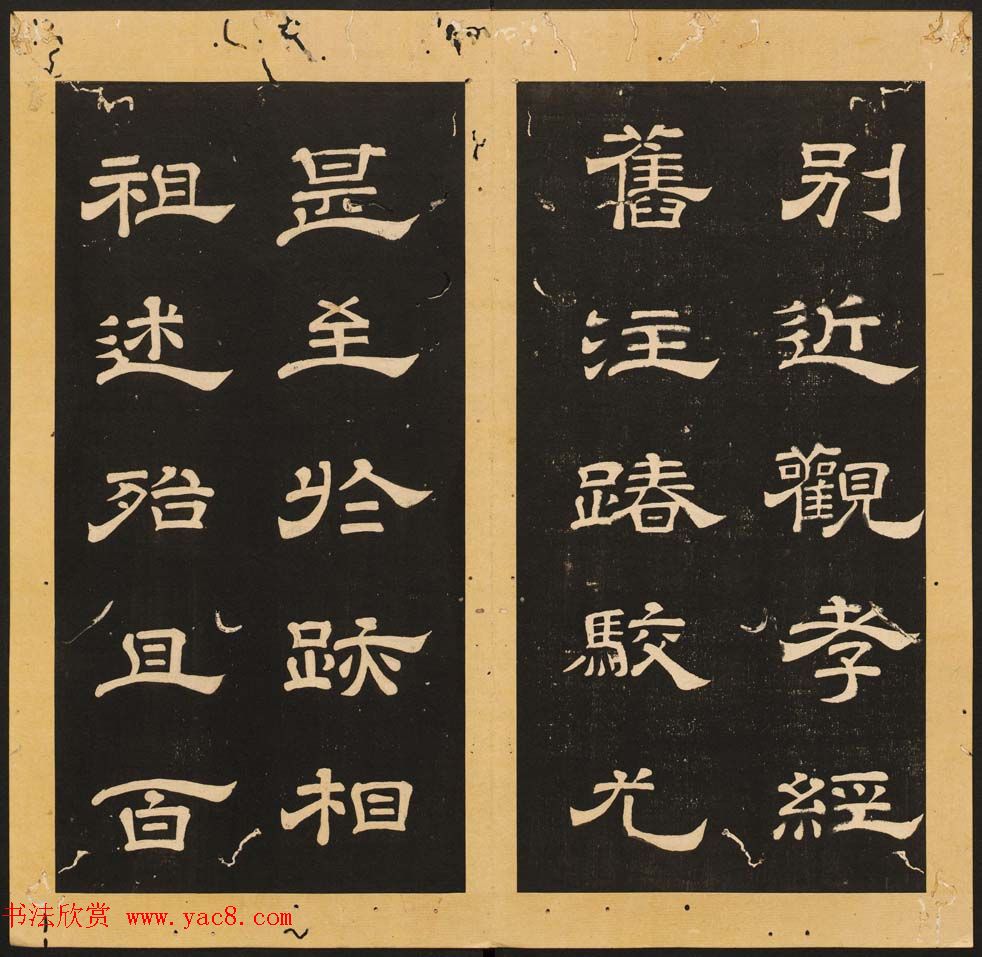 別近觀孝經
舊注踳駮尤
是至於跡相
祖述殆且百
书法欣赏 www.yac8.com